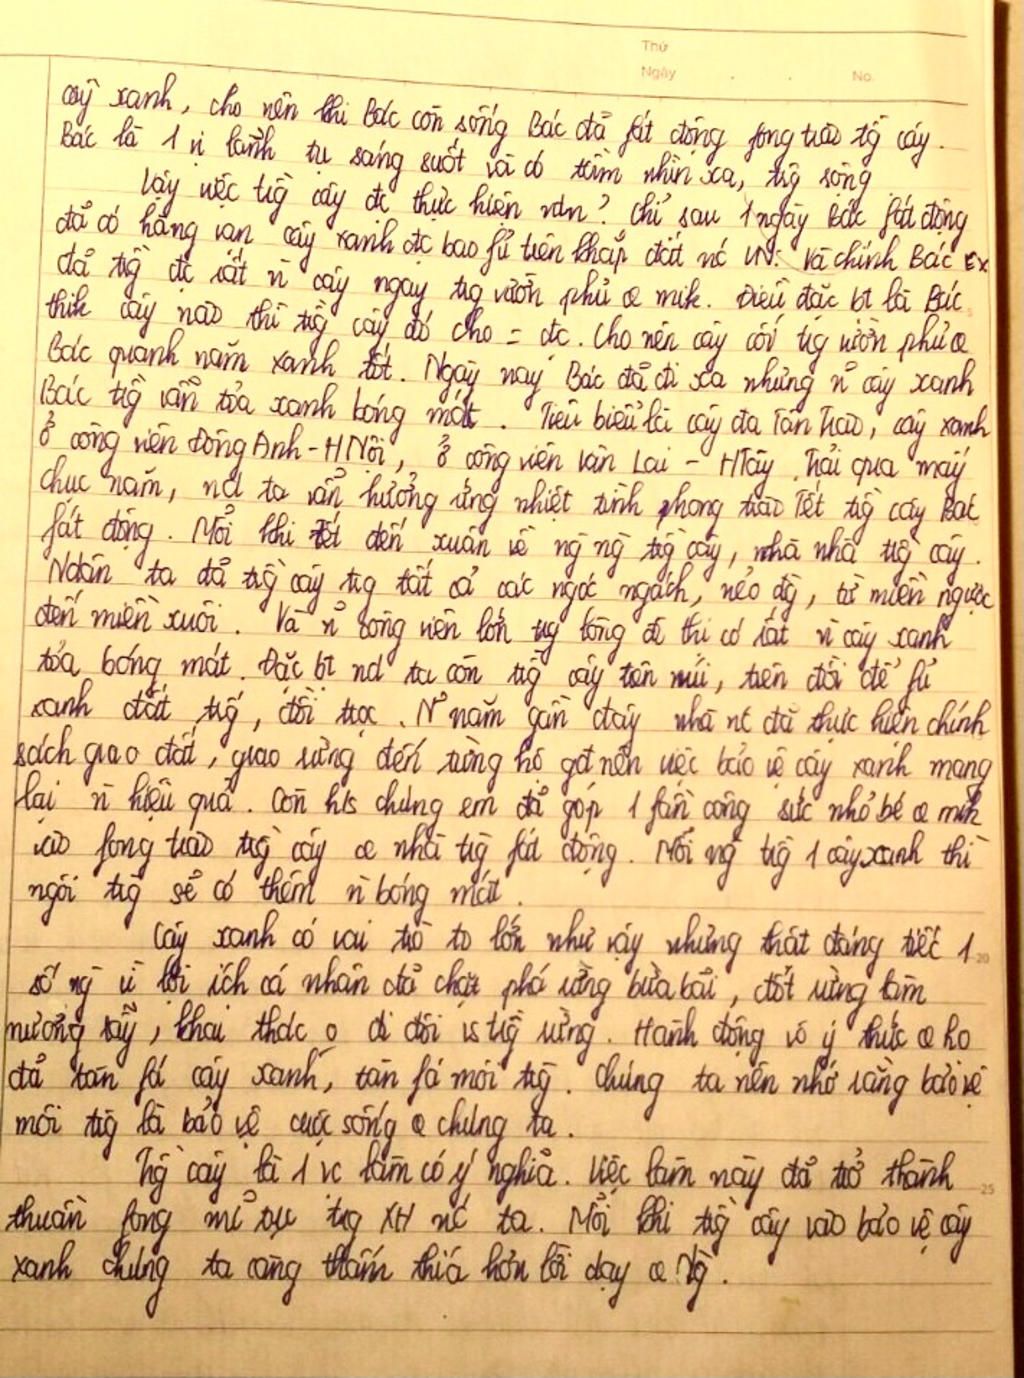 Thứ
Ngày . . No.
cây xanh, cho nên khi Bác còn sống Bác đã fát động fong trào tg̀ cây.
Bác là 1 vị lãnh tụ sáng suốt và có tầm nhìn xa, trg̀ sộng
Vậy việc trg̀ cây đc thực hiện ntn? Chỉ sau 1 ngày Bác fát động
đã có hàng vạn cây xanh đc bao fủ trên khắp đất nc VN. Và chính Bác
đã trg̀ đc rất n̄ cây ngay trg vườn phủ @ mik. Điều đặc bt là Bác
thik cây nào thì trg̀ cây đó cho = đc. Cho nên cây cối trg vườn phủ @
Bác quanh năm xanh tốt. Ngày nay Bác đã đi xa nhưng n~ cây xanh
Bác trg̀ vẫn tỏa xanh bóng mát. Tiêu biểu là cây đa Tân Trào, cây xanh
ở công viên Đông Anh - HNội, ở công viên Vân Lai - HTây. Trải qua mấy
chục năm, nd ta vẫn hưởng ứng nhiệt tình phong trào Tết trg̀ cây Bác
fát động. Mỗi khi tết đến xuân về ng ng trg̀ cây, nhà nhà trg̀ cây.
Ndân ta đã trg̀ cây trg tất cả các ngóc ngách, nẻo đg, từ miền ngược
đến miền xuôi. Và n~ công viên lớn trg lòng đô thị có rất n̄ cây xanh
tỏa bóng mát. Đặc bt nd ta còn trg̀ cây trên núi, trên đồi để fủ
xanh đất trống, đồi trọc. N~ năm gần đây nhà nc đã thực hiện chính
sách giao đất, giao rừng đến từng hộ gđ nên việc bảo vệ cây xanh mang
lại n̄ hiệu quả. Còn h/s chúng em đã góp 1 fần công sức nhỏ bé @ mik
vào fong trào trg̀ cây @ nhà trg fát động. Mỗi ng trg̀ 1 cây xanh thì
ngôi trg sẽ có thêm n̄ bóng mát.
Cây xanh có vai trò to lớn như vậy nhưng thật đáng tiếc 1
số ng vì lợi ích cá nhân đã chặt phá rừng bừa bãi, đốt rừng làm
nương rẫy, khai thác o đi đôi vs trg̀ rừng. Hành động vô ý thức @ họ
đã tàn fá cây xanh, tàn fá môi trg. Chúng ta nên nhớ rằng bảo vệ
môi trg là bảo vệ cuộc sống @ chúng ta.
Trg̀ cây là 1 vc làm có ý nghĩa. Việc làm này đã trở thành
thuần fong mĩ tục trg XH nc ta. Mỗi khi trg̀ cây vào bảo vệ cây
xanh chúng ta càng thấm thía hơn lời dạy @ Ng.